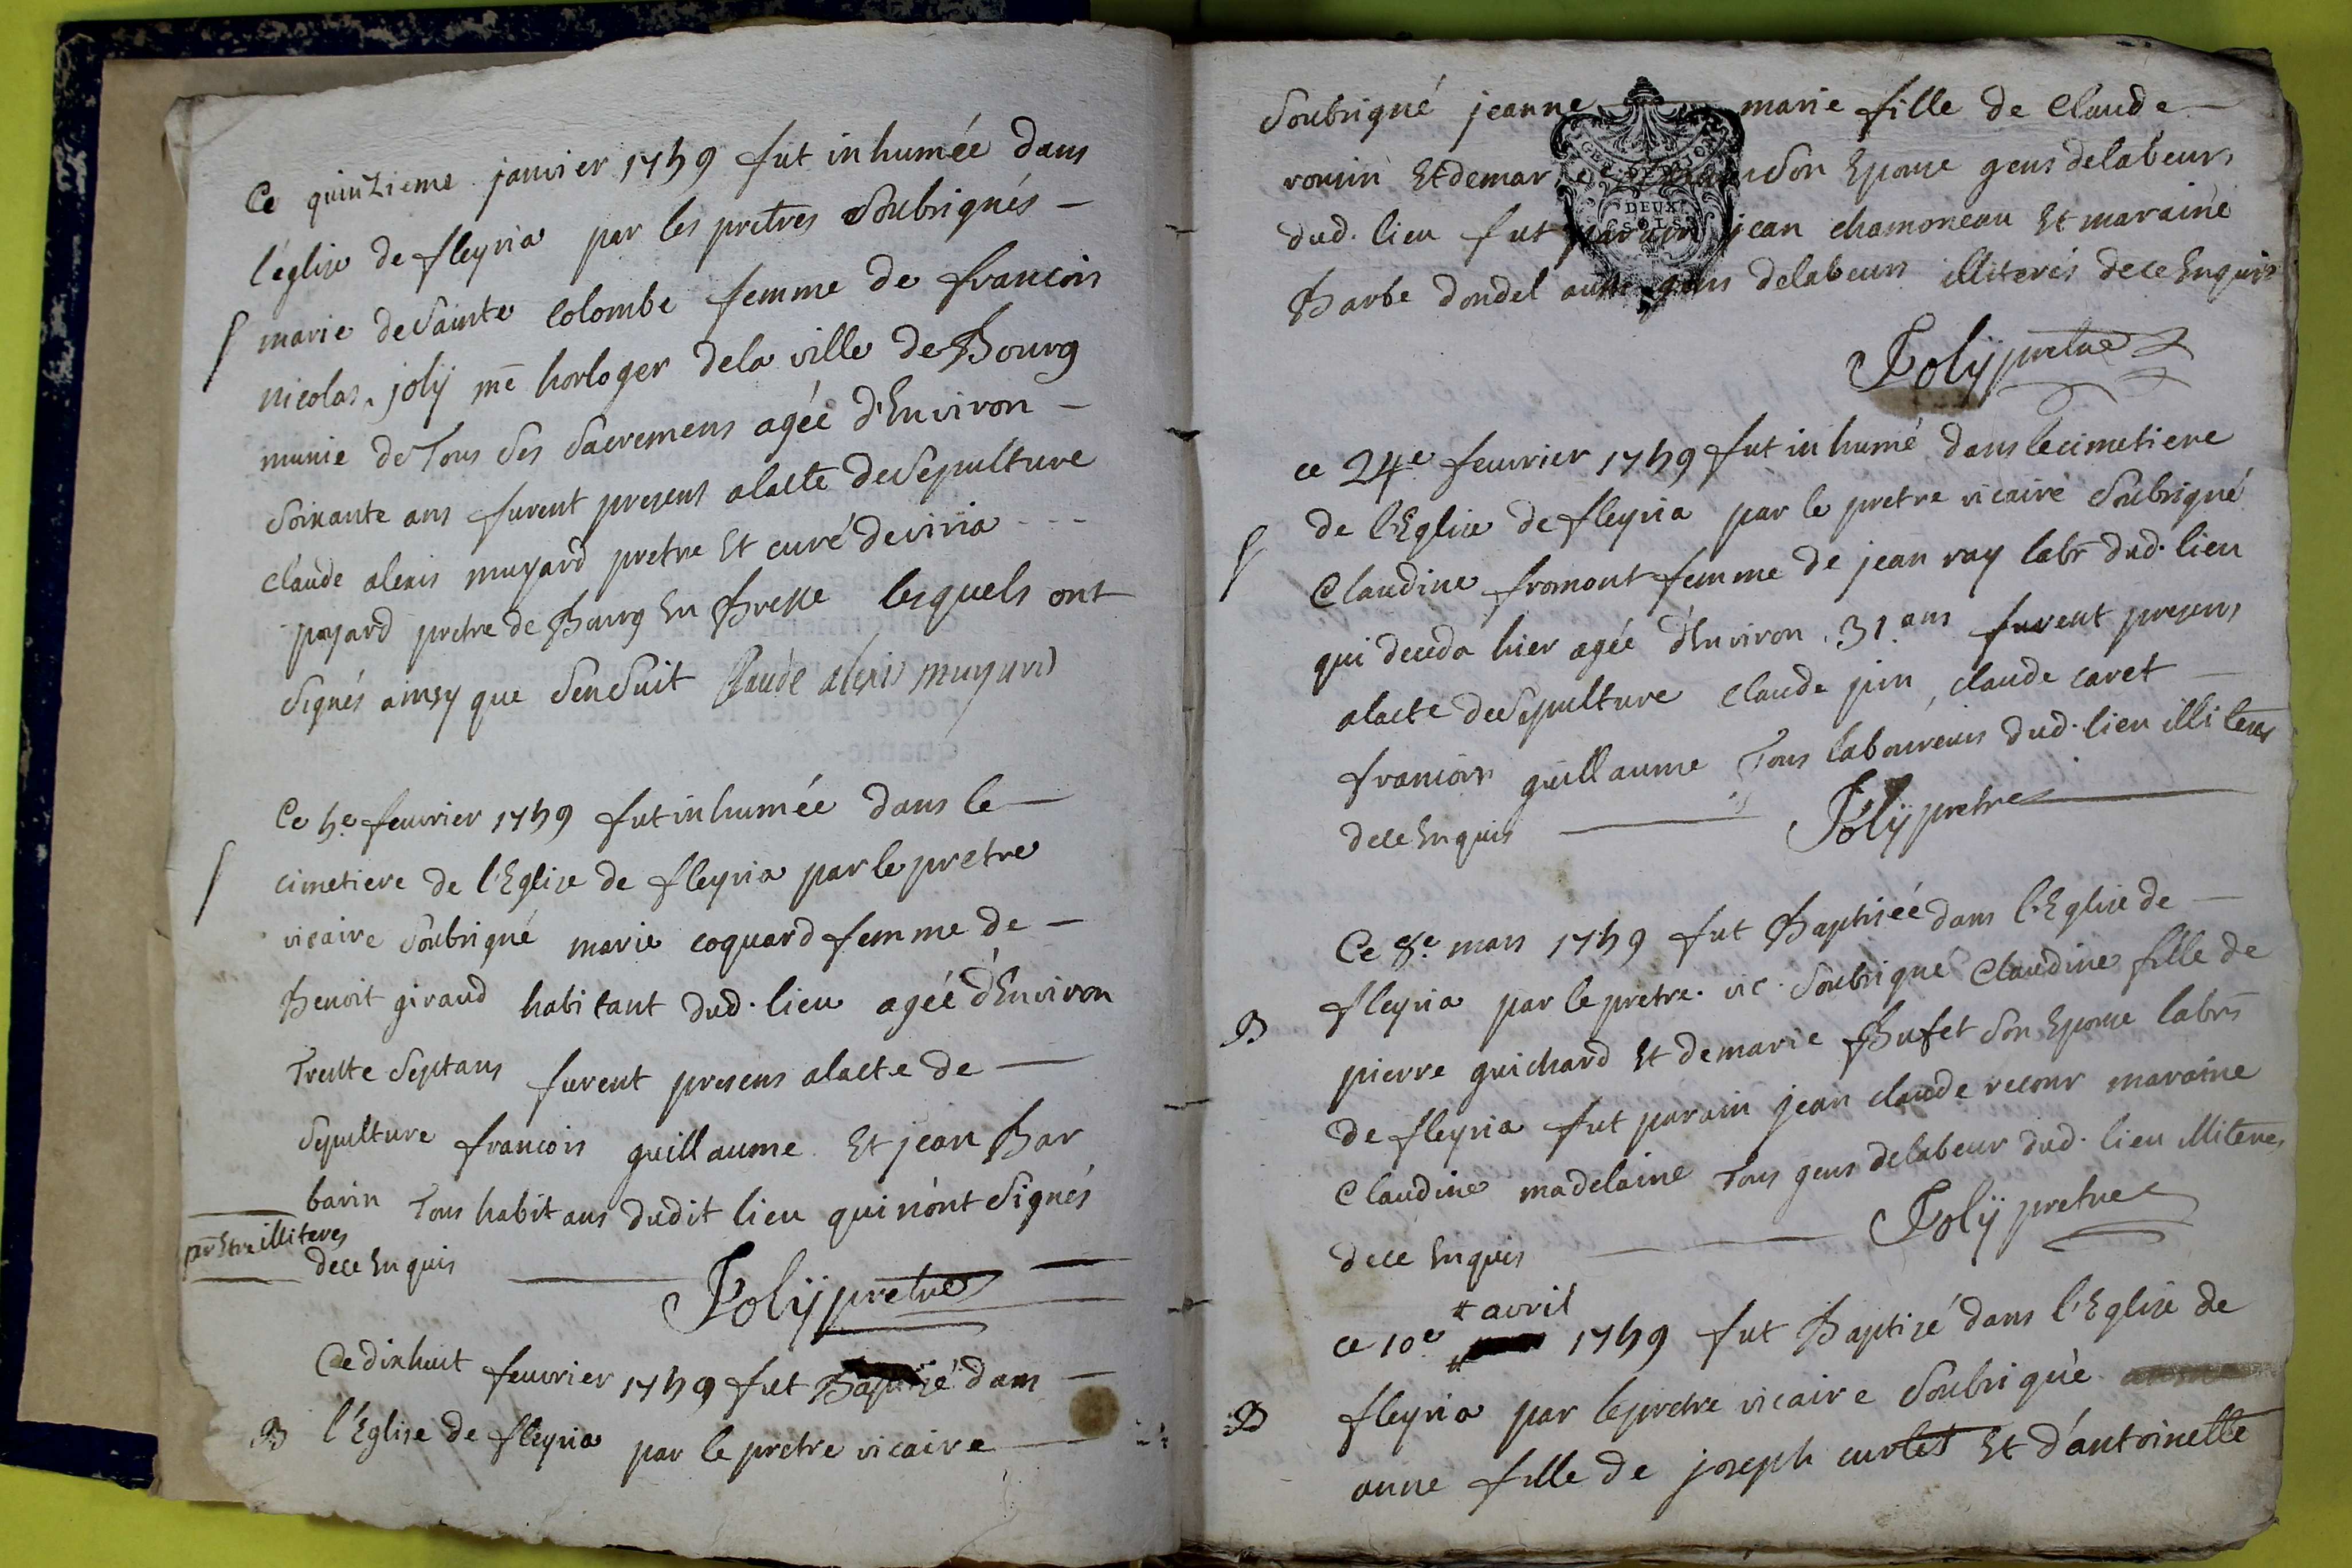 Ce quinzieme janvier 1759 fut inhumée dans
l'églize de fleyria par les pretres Soubsignés —
marie de Sainte Colombe femme de francois
nicolas joly me horloger de la ville de Bourg
munie de Tous Ses Sacremens agée d'Environ —
Soixante ans furent presens a lacte de Sepulture
Claude alexis muyard pretre Et curé de viria
payard pretre de Bourg En Bresse lesquels ont
Signés ainsy que Sensuit Claude alexis muyard
Ce 5.e feuvrier 1759 fut inhumée dans le —
cimetiere de l'Eglize de fleyria par le pretre
vicaire Soubsigné marie coquard femme de —
Benoit giraud habitant dud. lieu agée d'Environ
Trente Sept ans furent presens a lacte de —
Sepulture francois guillaume Et jean Bar
barin Tous habitans dudit lieu qui n'ont Signés
pr Etre illiteres
de ce Enquis
Joly pretre
Ce dixhuit feuvrier 1759 fut Baptizé dans —
B l'Eglise de fleyria par le pretre vicaire —
Soubsigné jeanne marie fille de Claude —
romin Et de mar Son Epouse gens de labeurs
dud. lieu fut parain jean chamoneau Et maraine
Barbe dondel aussi gens de labeurs illiterés de ce Enquis
GEN. DE DIJON
DEUX
SOLS
Joly pretre
ce 24e feuvrier 1759 fut inhumé dans le cimetiere
de l'Eglize de fleyria par le pretre vicaire Soubsigné
Claudine fromont femme de jean ray labr dud. lieu
qui deceda hier agée d'Environ 31 ans furent presens
a lacte de Sepulture Claude pin, claude caret —
francois guillaume Tous laboureurs dud. lieu illiteres
de ce Enquis — Joly pretre
Ce 8.e mars 1759 fut Baptizée dans l'Eglize de —
fleyria par le pretre vic. Soubsigné Claudine fille de
B
pierre guichard Et de marie Bufet Son Epouse labrs
de fleyria fut parain jean claude recour maraine
Claudine madelaine Tous gens de labeur dud. lieu illiteres
de ce Enquis — Joly pretre
avril
ce 10e 1759 fut Baptizé dans l'Eglize de
B fleyria par le pretre vicaire Soubsigné
anne fille de joseph curlet Et d'antoinette